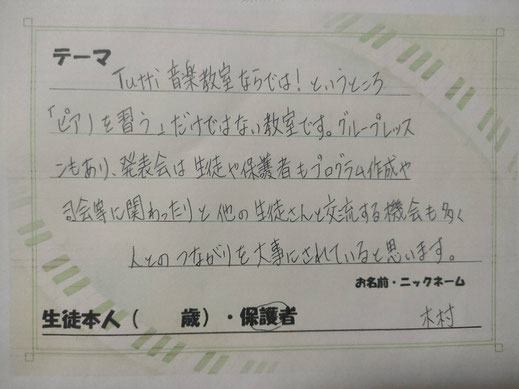 テーマ
Tutti 音楽教室ならでは!というところ
「ピアノを習う」だけではない教室です。グループレッス
ンもあり、発表会は生徒や保護者もプログラム作成や
司会等に関わったりと他の生徒さんと交流する機会も多く
人とのつながりを大事にされていると思います。
お名前・ニックネーム
生徒本人( 歳)・保護者 木村